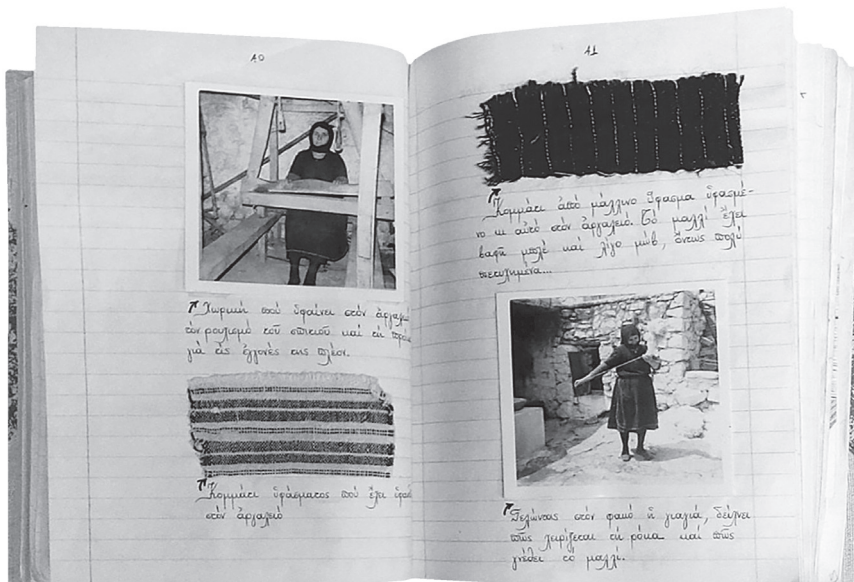 40
Χωρική ποὺ ὑφαίνει στὸν ἀργαλειὸ
τὸν ρουχισμὸ τοῦ σπιτιοῦ καὶ τὴ
γιὰ τὶς ἐγγονές της πλέον.
Κομμάτι ὑφάσματος ποὺ ἔχει
στὸν ἀργαλειὸ
41
Κομμάτι ἀπὸ μάλλινο ὕφασμα ὑφασμέ-
νο κι αὐτὸ στὸν ἀργαλειό. Τὸ μαλλὶ ἔχει
βαφῆ μπλὲ καὶ λίγο μώβ, ὄντως πολὺ
πετυχημένα...
Γελώντας στὸν φακὸ ἡ γιαγιά, δείχνει
πῶς χειρίζεται τὴ ρόκα καὶ πῶς
γνέθει τὸ μαλλί.